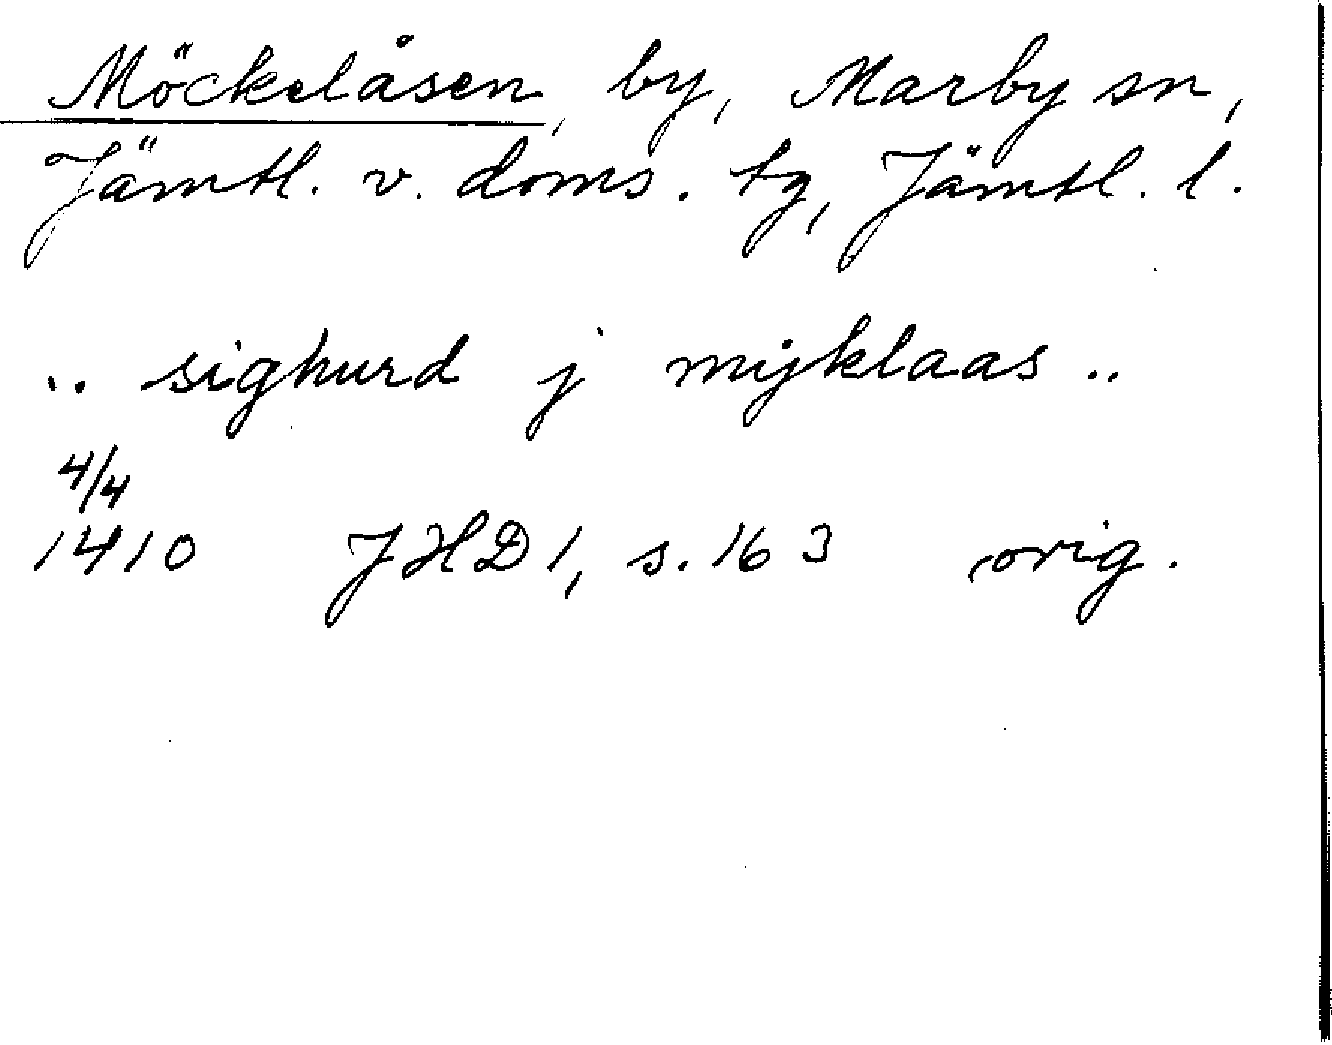 Möckelåsen, by, Marby sn,
Jämtl. v. doms. tg, Jämtl. l.
.. sighurd j mijklaas ..
4/4
1410 JHD 1, s. 163 orig.